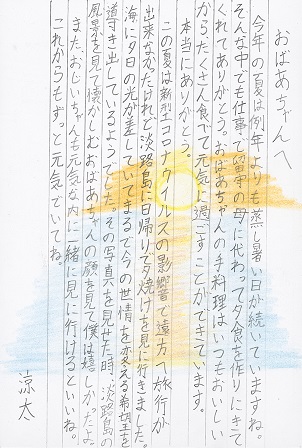 おばあちゃんへ
今年の夏は例年よりも蒸し暑い日が続いていますね。
そんな中でも仕事で留守の母に代わって夕食を作りにきて
くれてありがとう。おばあちゃんの手料理はいつもおいしい
から、たくさん食べて元気に過ごすことができています。
本当にありがとう。
この夏は新型コロナウイルスの影響で遠方へ旅行が
出来なかったけれど淡路島に日帰りで夕焼けを見に行きました。
海に夕日の光が差していてまるで今の世情を変える希望を
導き出しているようでした。その写真を見せた時、淡路島の
風景を見て懐かしむおばあちゃんの顔を見て僕は嬉しかったよ。
また、おじいちゃんも元気な内に一緒に見に行けるといいね。
これからもずっと元気でいてね。
涼太